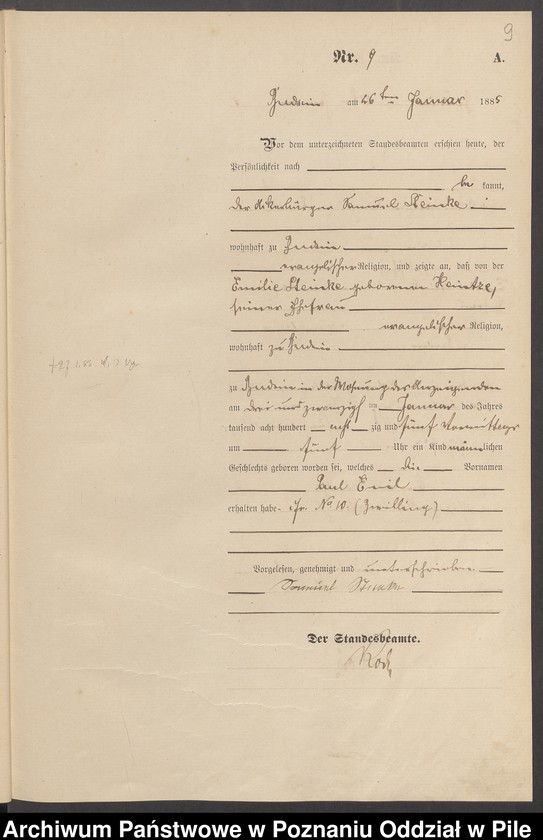 9
Nr. 9 A.
am 26ten Januar 1885
Vor dem unterzeichneten Standesbeamten erschien heute, der
Persönlichkeit nach
be kannt,
der Ackerbürger Samuel Steinke
wohnhaft zu
evangelischer Religion, und zeigte an, daß von der
Emilie Steinke geborenen Heintze,
seiner Ehefrau
evangelischer Religion,
wohnhaft zu
zu in der Wohnung des Anzeigenden
am drei und zwanzigsten Januar des Jahres
tausend acht hundert acht zig und fünf Vormittags
um fünf Uhr ein Kind männlichen
Geschlechts geboren worden sei, welches die Vornamen
Paul Emil
erhalten habe. No 10. (Zwilling)
Vorgelesen, genehmigt und unterschrieben
Samuel Steinke
Der Standesbeamte.
Koch
Archiwum Państwowe w Poznaniu Oddział w Pile